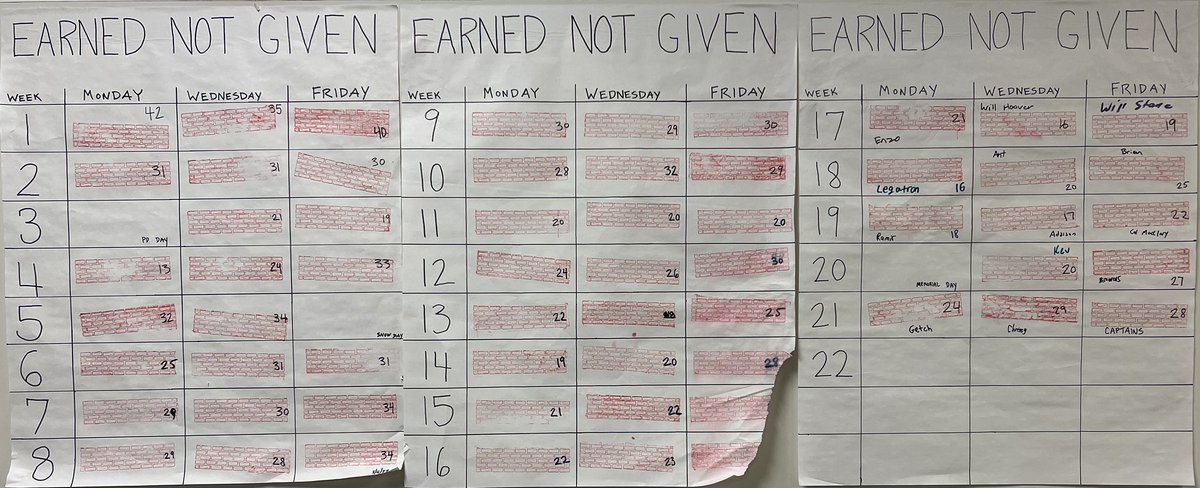 EARNED NOT GIVEN
WEEK MONDAY WEDNESDAY FRIDAY
1 42 35 40
2 31 31 30
3 PD DAY 21 19
4 13 24 33
5 32 34 SNOW DAY
6 25 31 31
7 29 30 34
8 29 28 34
EARNED NOT GIVEN
WEEK MONDAY WEDNESDAY FRIDAY
9 30 29 30
10 28 32 29
11 20 20 20
12 24 26 30
13 22 25
14 19 20 28
15 21 22
16 22 23
EARNED NOT GIVEN
WEEK MONDAY WEDNESDAY FRIDAY
Will Hoover Will Stone
17 21 16 19
Enzo
Art Brian
18 Legatron 16 20 25
19 17 22
18 Addison
Kev
20 MEMORIAL DAY 20 27
21 24 29 28
Getch CAPTAINS
22